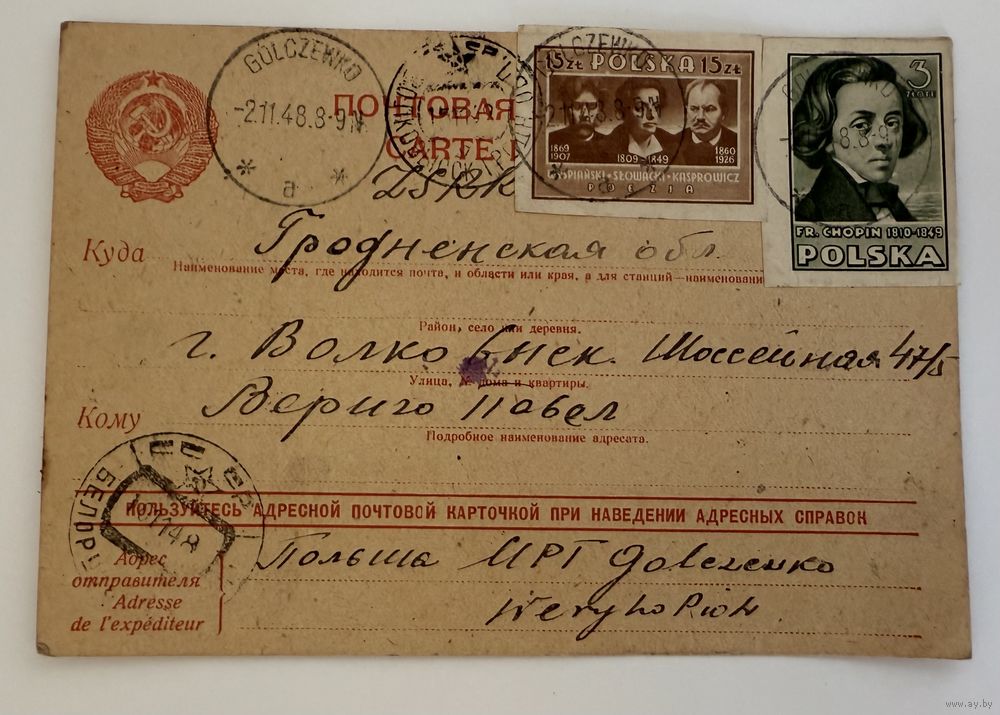 GOLCZENKO
-2.11.48.8-9N
*   *
a
ПОЧТОВАЯ
CARTE
ZSRR
15 ZŁ POLSKA 15 ZŁ
1869
1907
1809-1849
1860
1926
WYSPIAŃSKI-SŁOWACKI-KASPROWICZ
POEZJA
3
ZŁOTE
FR. CHOPIN 1810-1849
POLSKA
Куда
Гродненская обл
Наименование места, где находится почта, и области или края, а для станций—наименовани
Район, село или деревня.
г. Волковыск. Шоссейная 47/5
Улица, № дома и квартиры.
Кому
Вериго Павел
Подробное наименование адресата.
ПОЛЬЗУЙТЕСЬ АДРЕСНОЙ ПОЧТОВОЙ КАРТОЧКОЙ ПРИ НАВЕДЕНИИ АДРЕСНЫХ СПРАВОК
Адрес
отправителя
Adresse
de l'expéditeur
Польша
Weryho Piotr
www.ay.by